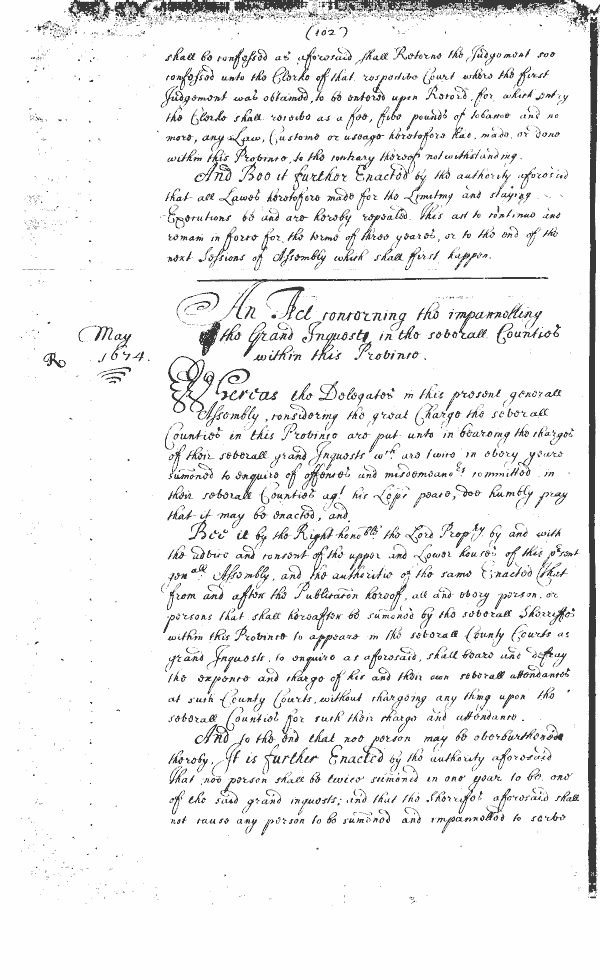 (102)
shall be confessed as aforesaid shall Returne the Judgement soe
confessed unto the Clerke of that respective Court where the first
Judgement was obtained, to be entered upon Record, for which entry
the Clerke shall receive as a fee, five pounds of tobacco and no
more, any Law, Custome or useage heretofore had, made, or done
within this Province, to the contrary thereof notwithstanding.
And Bee it further Enacted by the authority aforesaid
that all Lawes heretofore made for the Limiting and staying
Executions be and are hereby repealed. this act to continue and
remain in force for the terme of three yeares, or to the end of the
next Sessions of Assembly which shall first happen.
An Act concerning the impannelling
the Grand Inquests in the severall Counties
within this Province.
May
R 1674.
Whereas the Delegates in this present generall
Assembly, considering the great Charge the severall
Counties in this Province are put unto in bearing the charges
of their severall grand Inquests wch are twice in every yeare
sumoned to enquire of offences and misdemeanrs committed in
their severall Counties agt his Lopps peace, doe humbly pray
that it may be enacted, and
Bee it by the Right honoble the Lord Propry by and with
the advice and consent of the upper and Lower houses of this psent
genall Assembly, and the authoritie of the same Enacted That
from and after the Publicacon hereof, all and every person, or
persons that shall hereafter be sumoned by the severall Sherriffes
within this Province to appeare in the severall County Courts as
grand Inquests, to enquire as aforesaid, shall beare and defray
the expence and charge of his and their own severall attendances
at such County Courts, without chargeing any thing upon the
severall Counties for such their charge and attendance.
And to the end that noe person may be overburthened
thereby, It is further Enacted by the authority aforesaid
that noe person shall be twice sumoned in one year to be one
of the said grand inquests; and that the Sherriffes aforesaid shall
not cause any person to be sumoned and impannelled to serve